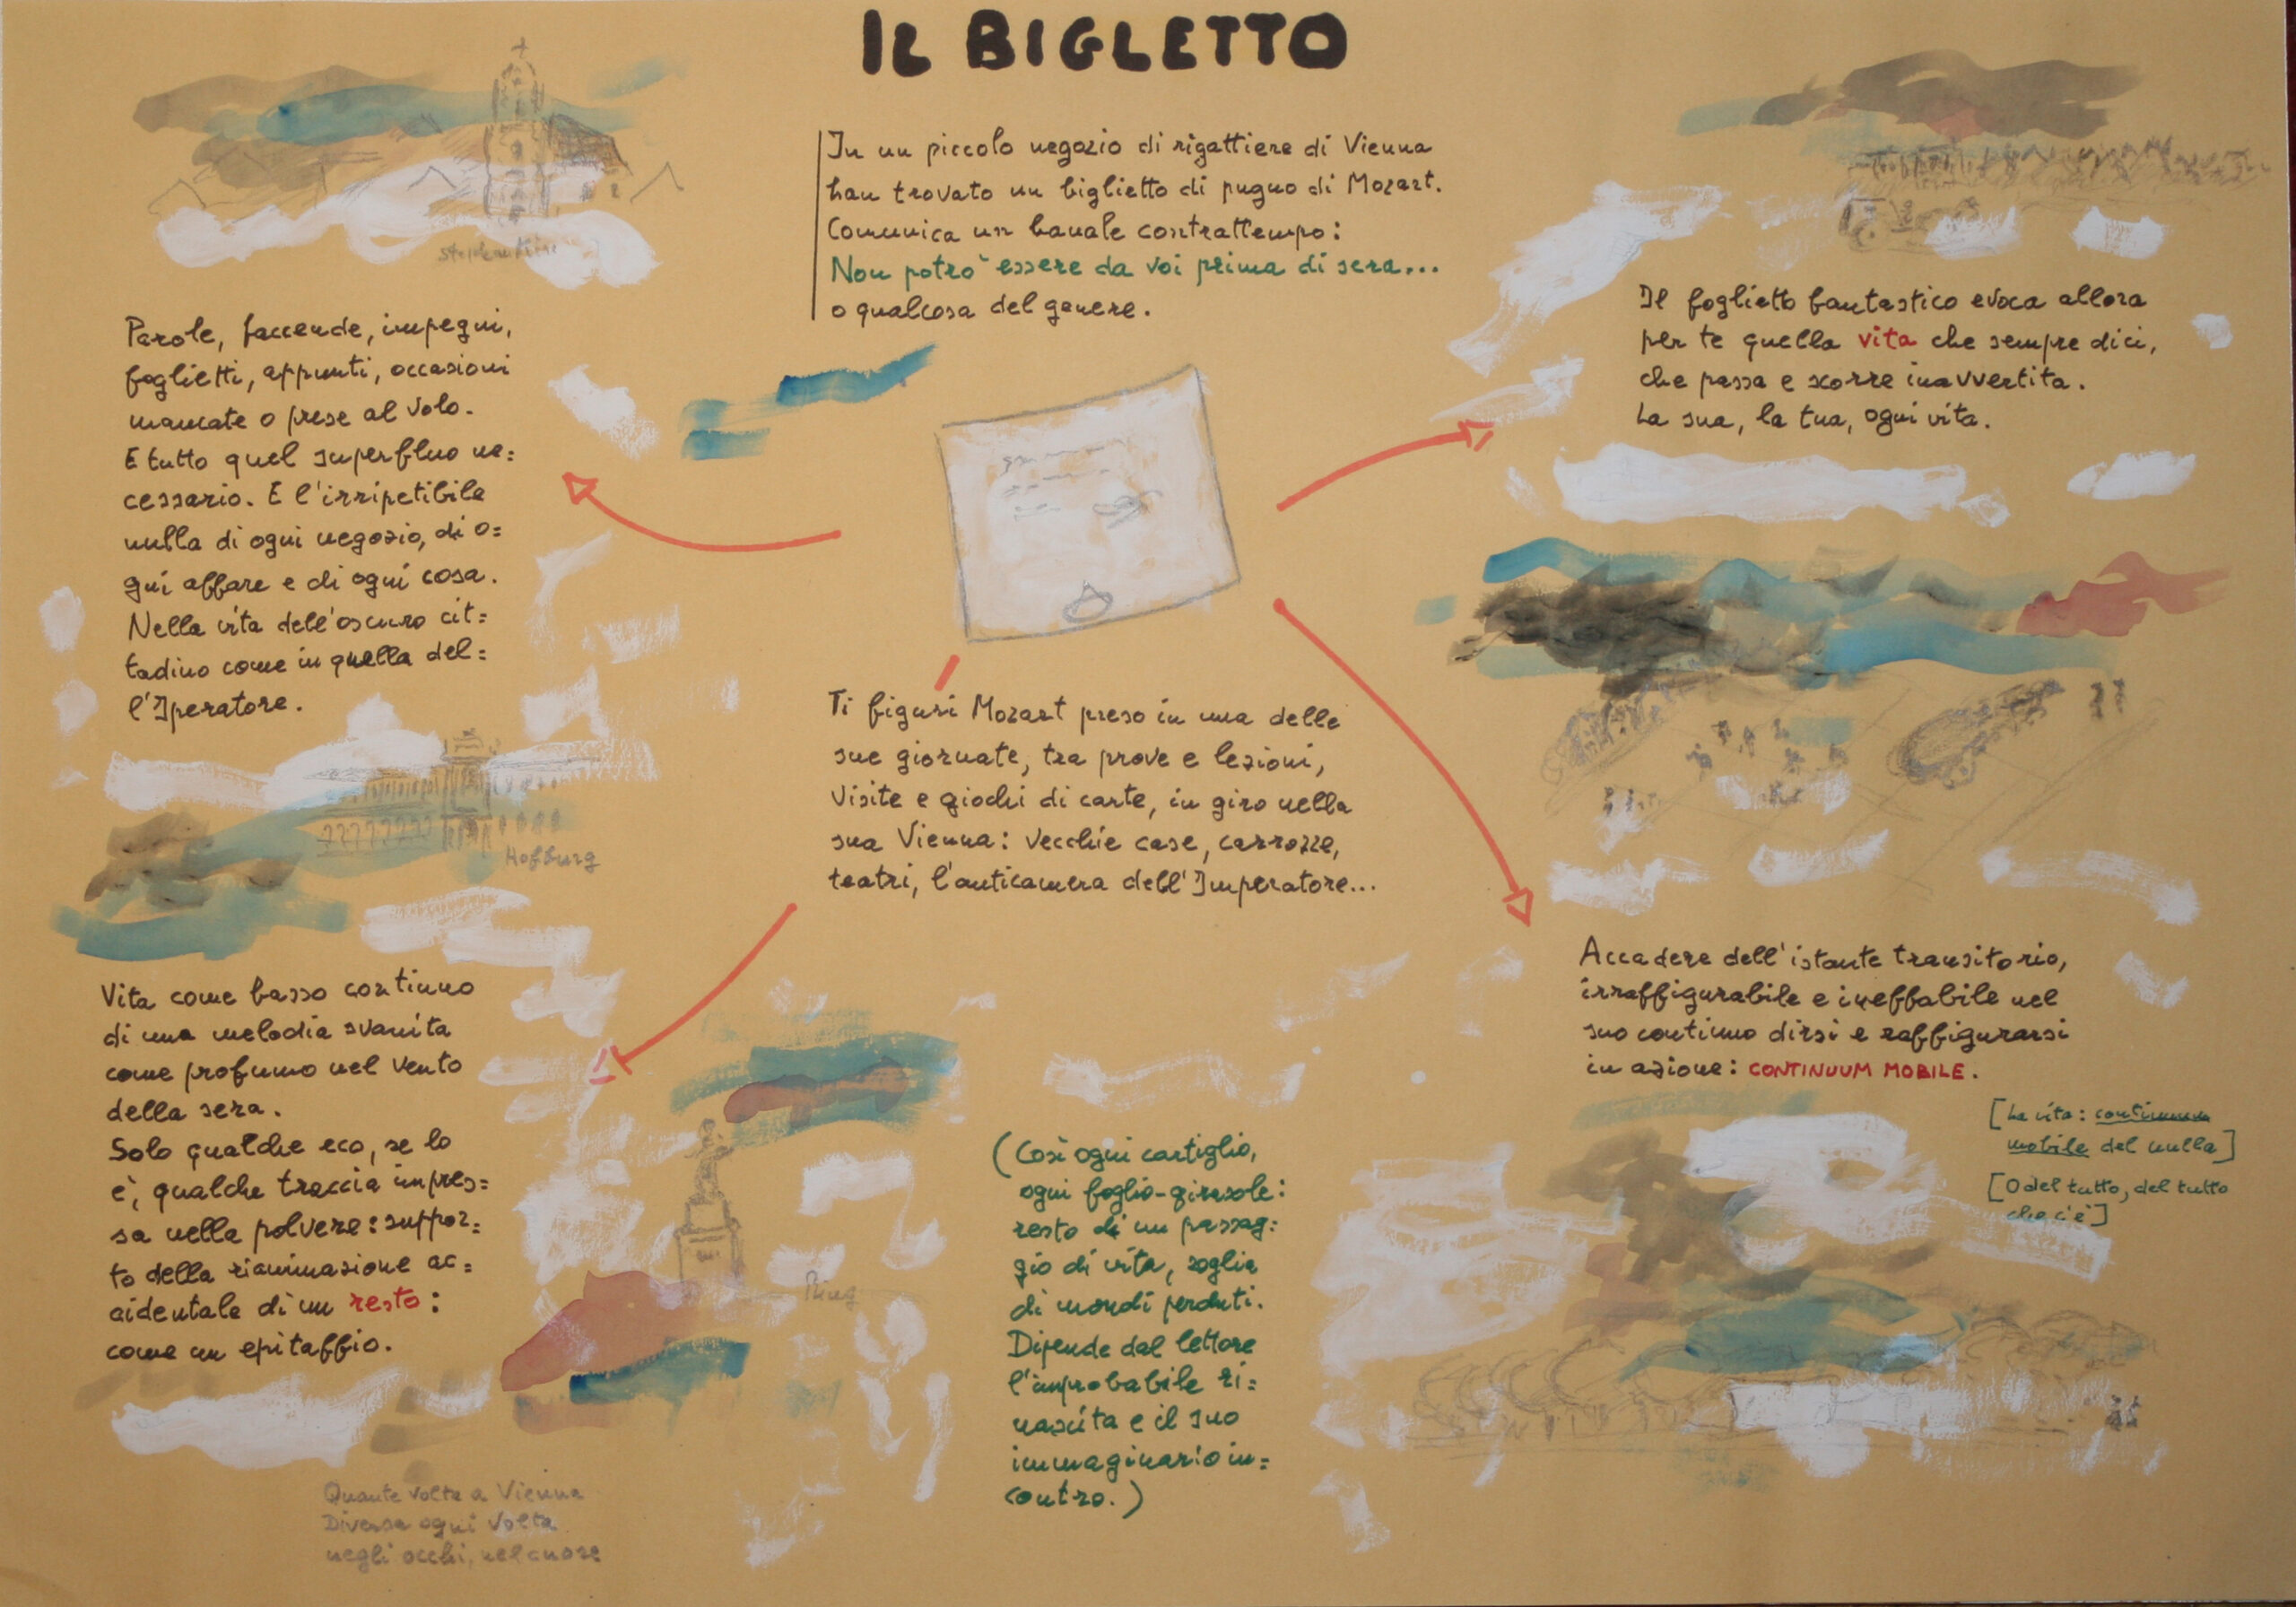 IL BIGLETTO
In un piccolo negozio di rigattiere di Vienna
han trovato un biglietto di pugno di Mozart.
Comunica un banale contrattempo:
Non potrò essere da voi prima di sera...
o qualcosa del genere.
Parole, faccende, impegni,
foglietti, appunti, occasioni
mancate o prese al volo.
E tutto quel superfluo ne=
cessario. E l'irripetibile
nulla di ogni negozio, di o=
gni affare e di ogni cosa.
Nella vita dell'oscuro cit=
tadino come in quella del=
l'Iperatore.
Hofburg
Vita come basso continuo
di una melodia svanita
come profumo nel vento
della sera.
Solo qualche eco, se lo
è, qualche traccia impres=
sa nella polvere: suppor=
to della rianimazione ac=
cidentale di un resto:
come un epitaffio.
Quante volte a Vienna
Diversa ogni volta
negli occhi, nel cuore
Ti figuri Mozart preso in una delle
sue giornate, tra prove e lezioni,
visite e giochi di carte, in giro nella
sua Vienna: vecchie case, carrozze,
teatri, l'anticamera dell'Imperatore...
Ring
(Così ogni cartiglio,
ogni foglio-girasole:
resto di un passag=
gio di vita, soglia
di mondi perduti.
Dipende dal lettore
l'improbabile ri=
nascita e il suo
immaginario in=
contro.)
Il foglietto fantastico evoca allora
per te quella vita che sempre dici,
che passa e scorre inavvertita.
La sua, la tua, ogni vita.
Accadere dell'istante transitorio,
irraffigurabile e ineffabile nel
suo continuo dirsi e raffigurarsi
in azione: CONTINUUM MOBILE.
[La vita: continuum
mobile del nulla]
[O del tutto, del tutto
che c'è]